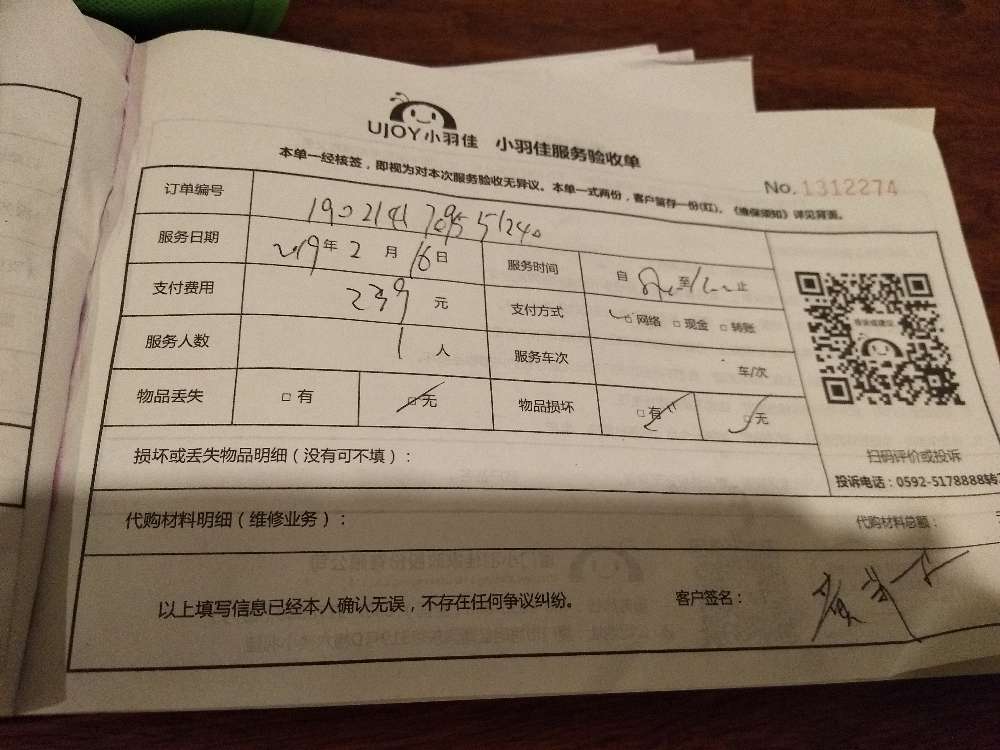 UJOY小羽佳 小羽佳服务验收单
本单一经核签，即视为对本次服务验收无异议。本单一式两份，客户留存一份(红)。《维保须知》详见背面。
No. 1312274
订单编号
服务日期 2019年2月16日 服务时间 自 至 止
支付费用 239 元 支付方式 □网络 □现金 □转账
服务人数 1 人 服务车次 车/次
物品丢失 □有 □无 物品损坏 □有 □无
扫码评价或投诉
投诉电话：0592-5178888转
损坏或丢失物品明细（没有可不填）：
代购材料明细（维修业务）： 代购材料总额：
以上填写信息已经本人确认无误，不存在任何争议纠纷。 客户签名：